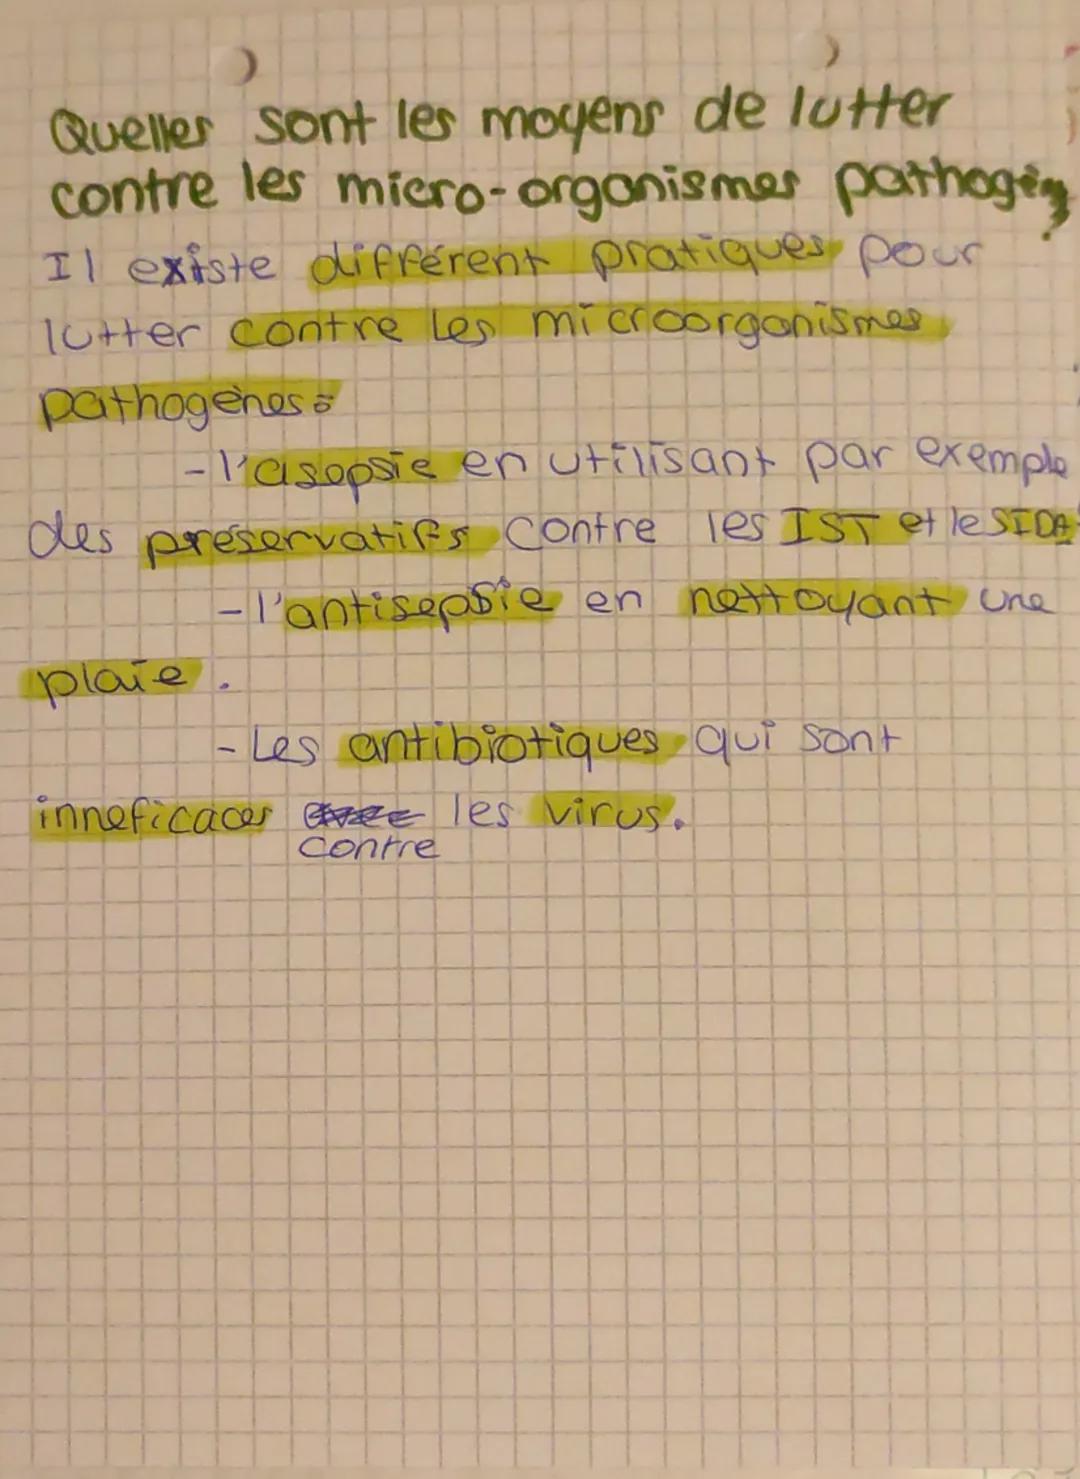 Quelles sont les moyens de lutter
contre les micro-organismes pathogèn
Il existe différent pratiques pour
lutter contre les microorganismes
pathogènes :
-l'asepsie en utilisant par exemple
des préservatifs contre les IST et le SIDA
-l'antisepsie en nettoyant une
plaie .
-Les antibiotiques qui sont
inneficaces avec les virus.
contre